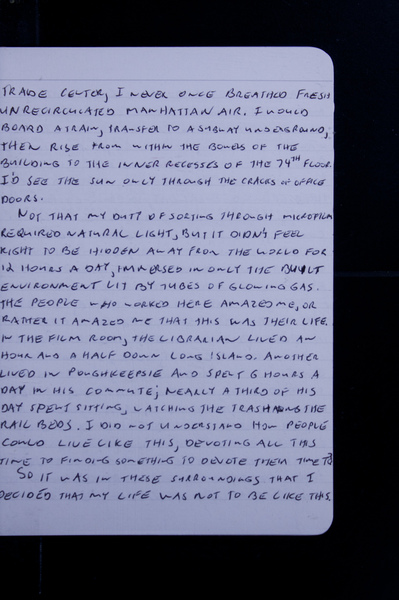 TRADE CENTOR, I NEVER ONCE BREATHED FRESH
UNRECIRCULATED MANHATTAN AIR. I WOULD
BOARD A TRAIN, TRANSFER TO A SUBWAY UNDERGROUND,
THEN RISE FROM WITHIN THE BOWELS OF THE
BUILDING TO THE INNER RECESSES OF THE 74TH FLOOR.
I'D SEE THE SUN ONLY THROUGH THE CRACKS OF OFFICE
DOORS.
NOT THAT MY DUTY OF SORTING THROUGH MICROFILM
REQUIRED NATURAL LIGHT, BUT IT DIDN'T FEEL
RIGHT TO BE HIDDEN AWAY FROM THE WORLD FOR
12 HOURS A DAY, IMMERSED IN ONLY THE BUILT
ENVIRONMENT LIT BY TUBES OF GLOWING GAS.
THE PEOPLE WHO WORKED HERE AMAZED ME, OR
RATHER IT AMAZED ME THAT THIS WAS THEIR LIFE.
IN THE FILM ROOM, THE LIBRARIAN LIVED AN
HOUR AND A HALF DOWN LONG ISLAND. ANOTHER
LIVED IN POUGHKEEPSIE AND SPENT 6 HOURS A
DAY IN HIS COMMUTE; NEARLY A THIRD OF HIS
DAY SPENT SITTING, WATCHING THE TRASH ALONG THE
RAIL BEDS. I DID NOT UNDERSTAND HOW PEOPLE
COULD LIVE LIKE THIS, DEVOTING ALL THIS
TIME TO FINDING SOMETHING TO DEVOTE THEIR TIME TO?
SO IT WAS IN THESE SURROUNDINGS THAT I
DECIDED THAT MY LIFE WAS NOT TO BE LIKE THIS.